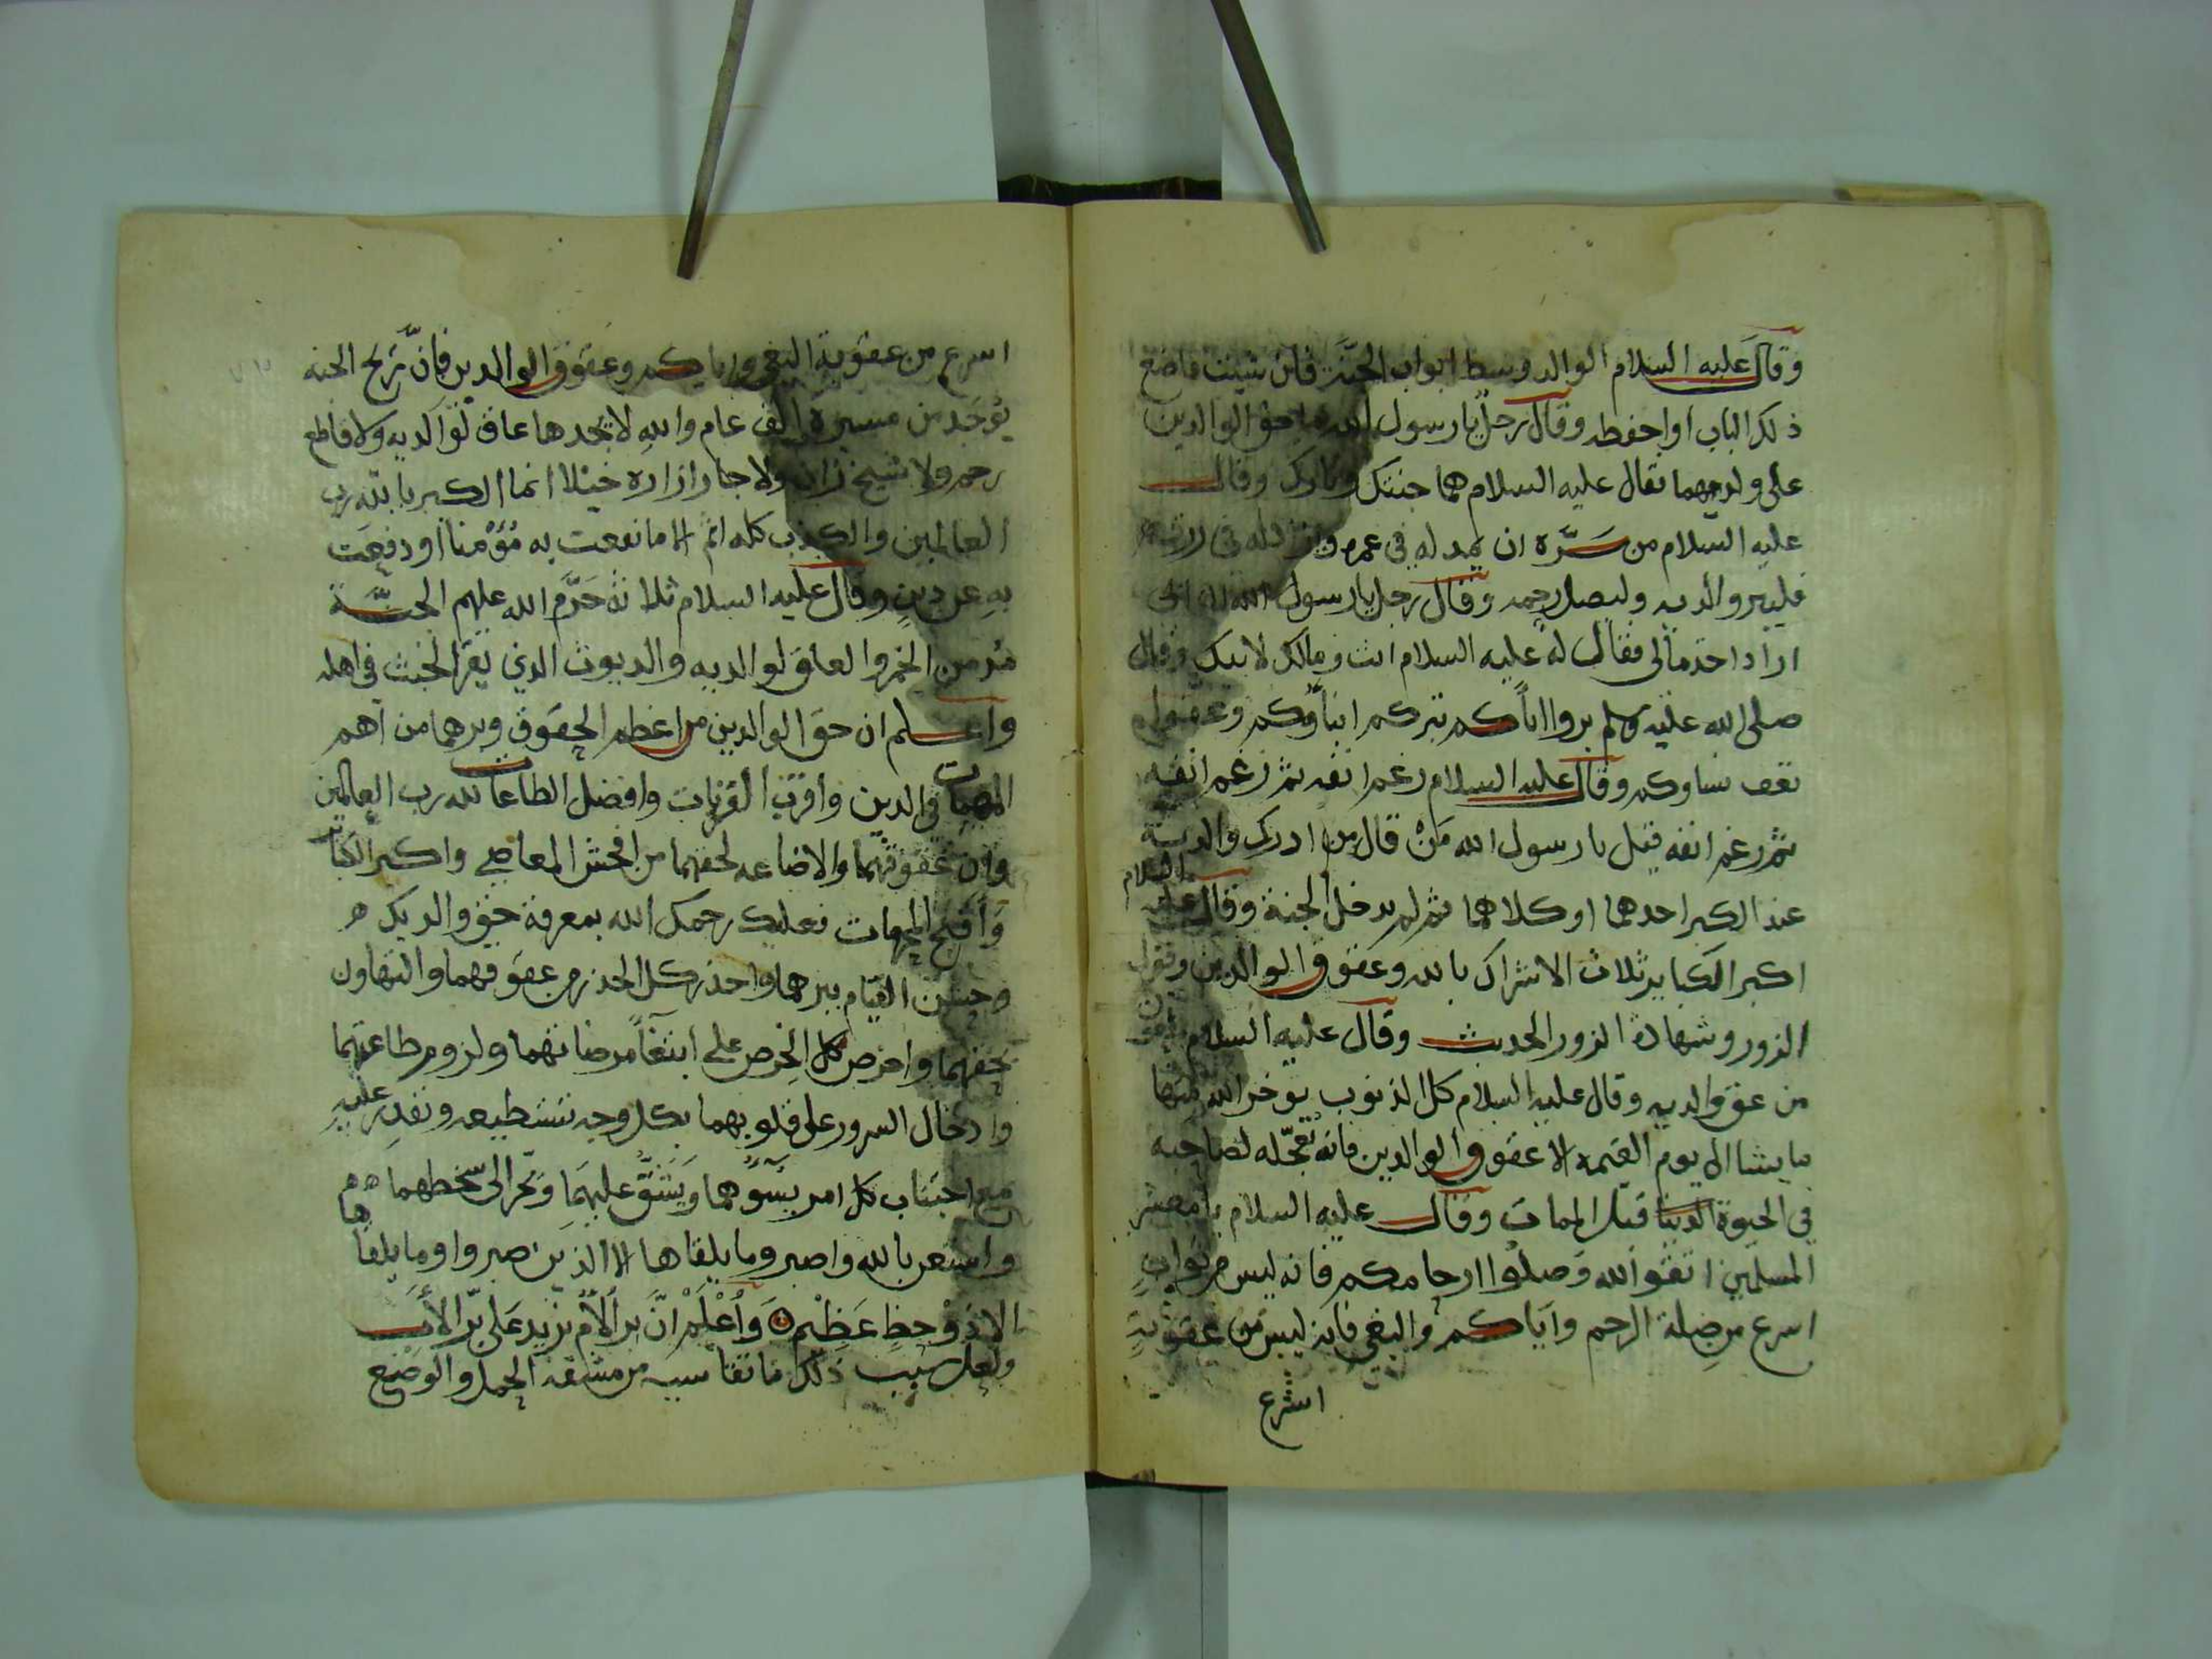 وقال عليه السلام الوالد وسط ابواب الجنة فان شيت فاضع
ذلك الباب او احفظه وقال رجل يا رسول الله ما حق الوالدين
على ولدهما فقال عليه السلام هما جنتك ونارك وقال
عليه السلام من سَرَّه ان يمد له في عمره ويزاد له في رزقه
فليبر والديه وليصل رحمه وقال رجل يا رسول الله ان ابي
اراد اخذ مالي فقال له عليه السلام انت ومالك لابيك وقال
صلى الله عليه وسلم بروا اباكم تبركم ابناؤكم وعفوا
تعف نساوكم وقال عليه السلام رغم انفه ثم رغم انفه
ثم رغم انفه قيل يا رسول الله مَنْ قال من ادرك والديه
عند الكبر احدهما او كلاهما ثم لم يدخل الجنة وقال عليه السلام
اكبر الكباير ثلاث الاشراك بالله وعقوق الوالدين وقول
الزور وشهادة الزور الحديث وقال عليه السلام
من عق والديه وقال عليه السلام كل الذنوب يوخر الله منها
ما يشا الى يوم القيمة الا عقوق الوالدين فانه يعجّله لصاحبه
في الحيوة الدنيا قبل الممات وقال عليه السلام يا معشر
المسلمين اتقوا الله وَصلوا ارحامكم فانه ليس من ثواب
اسرع من صِلة الرحم واياكم والبغي فانه ليس من عقوبة
اسرع
اسرع من عقوبة البغي واياكم وعقوق الوالدين فانّ ريح الجنه
يوجَد من مسيرة الف عام والله لا يجدها عاق لوالديه ولا قاطع
رحم ولا شيخ زان ولا جار ازاره خيلا انما الكبر يا لله رب
العالمين والكذب كله اثم الا ما نفعت به مُؤْمنا او دفعَت
بهِ عن دينٍ وقال عليه السلام ثلاثة حَرَّم الله عليهم الجنَّة
مُدمن الخمر والعاق لوالديه والديوث الذي يقر الخبث في اهله
واعلم ان حق الوالدين من اعظم الحقوق وبرهما من اهم
المهمات في الدين واقرب القربات وافضل الطاعات لله رب العالمين
وان عقوقهما والاضاعه لحقهما من افحش المعاصي واكبر الكبائر
وَاقبح فعليك رحمك الله بمعرفة حق والديك
وحسن القيام ببرهما واحذر كل الحذر من عقوقهما والتهاون
بحقهما واحرص كل الحِرص على ابتغاً مرضاتهما ولزوم طاعتهما
وادخال السرور على قلوبهما بكل وجه تستطيعه وتقدِر عليهِ
مع اجتناب كل امر يسؤهما ويَشقّ عليهِمَا ويجر الى سخطهما
واستعن بالله واصبر وما يلقاها الا الذين صبروا وما يلقاها
الا ذوْ حظٍ عَظِيْم وَاُعْلَمْ انّ بر الأم يزيد عَلى برّ الأب
ولعل سبب ذلك ما تقاسيه من مشقة الحمل والوضع